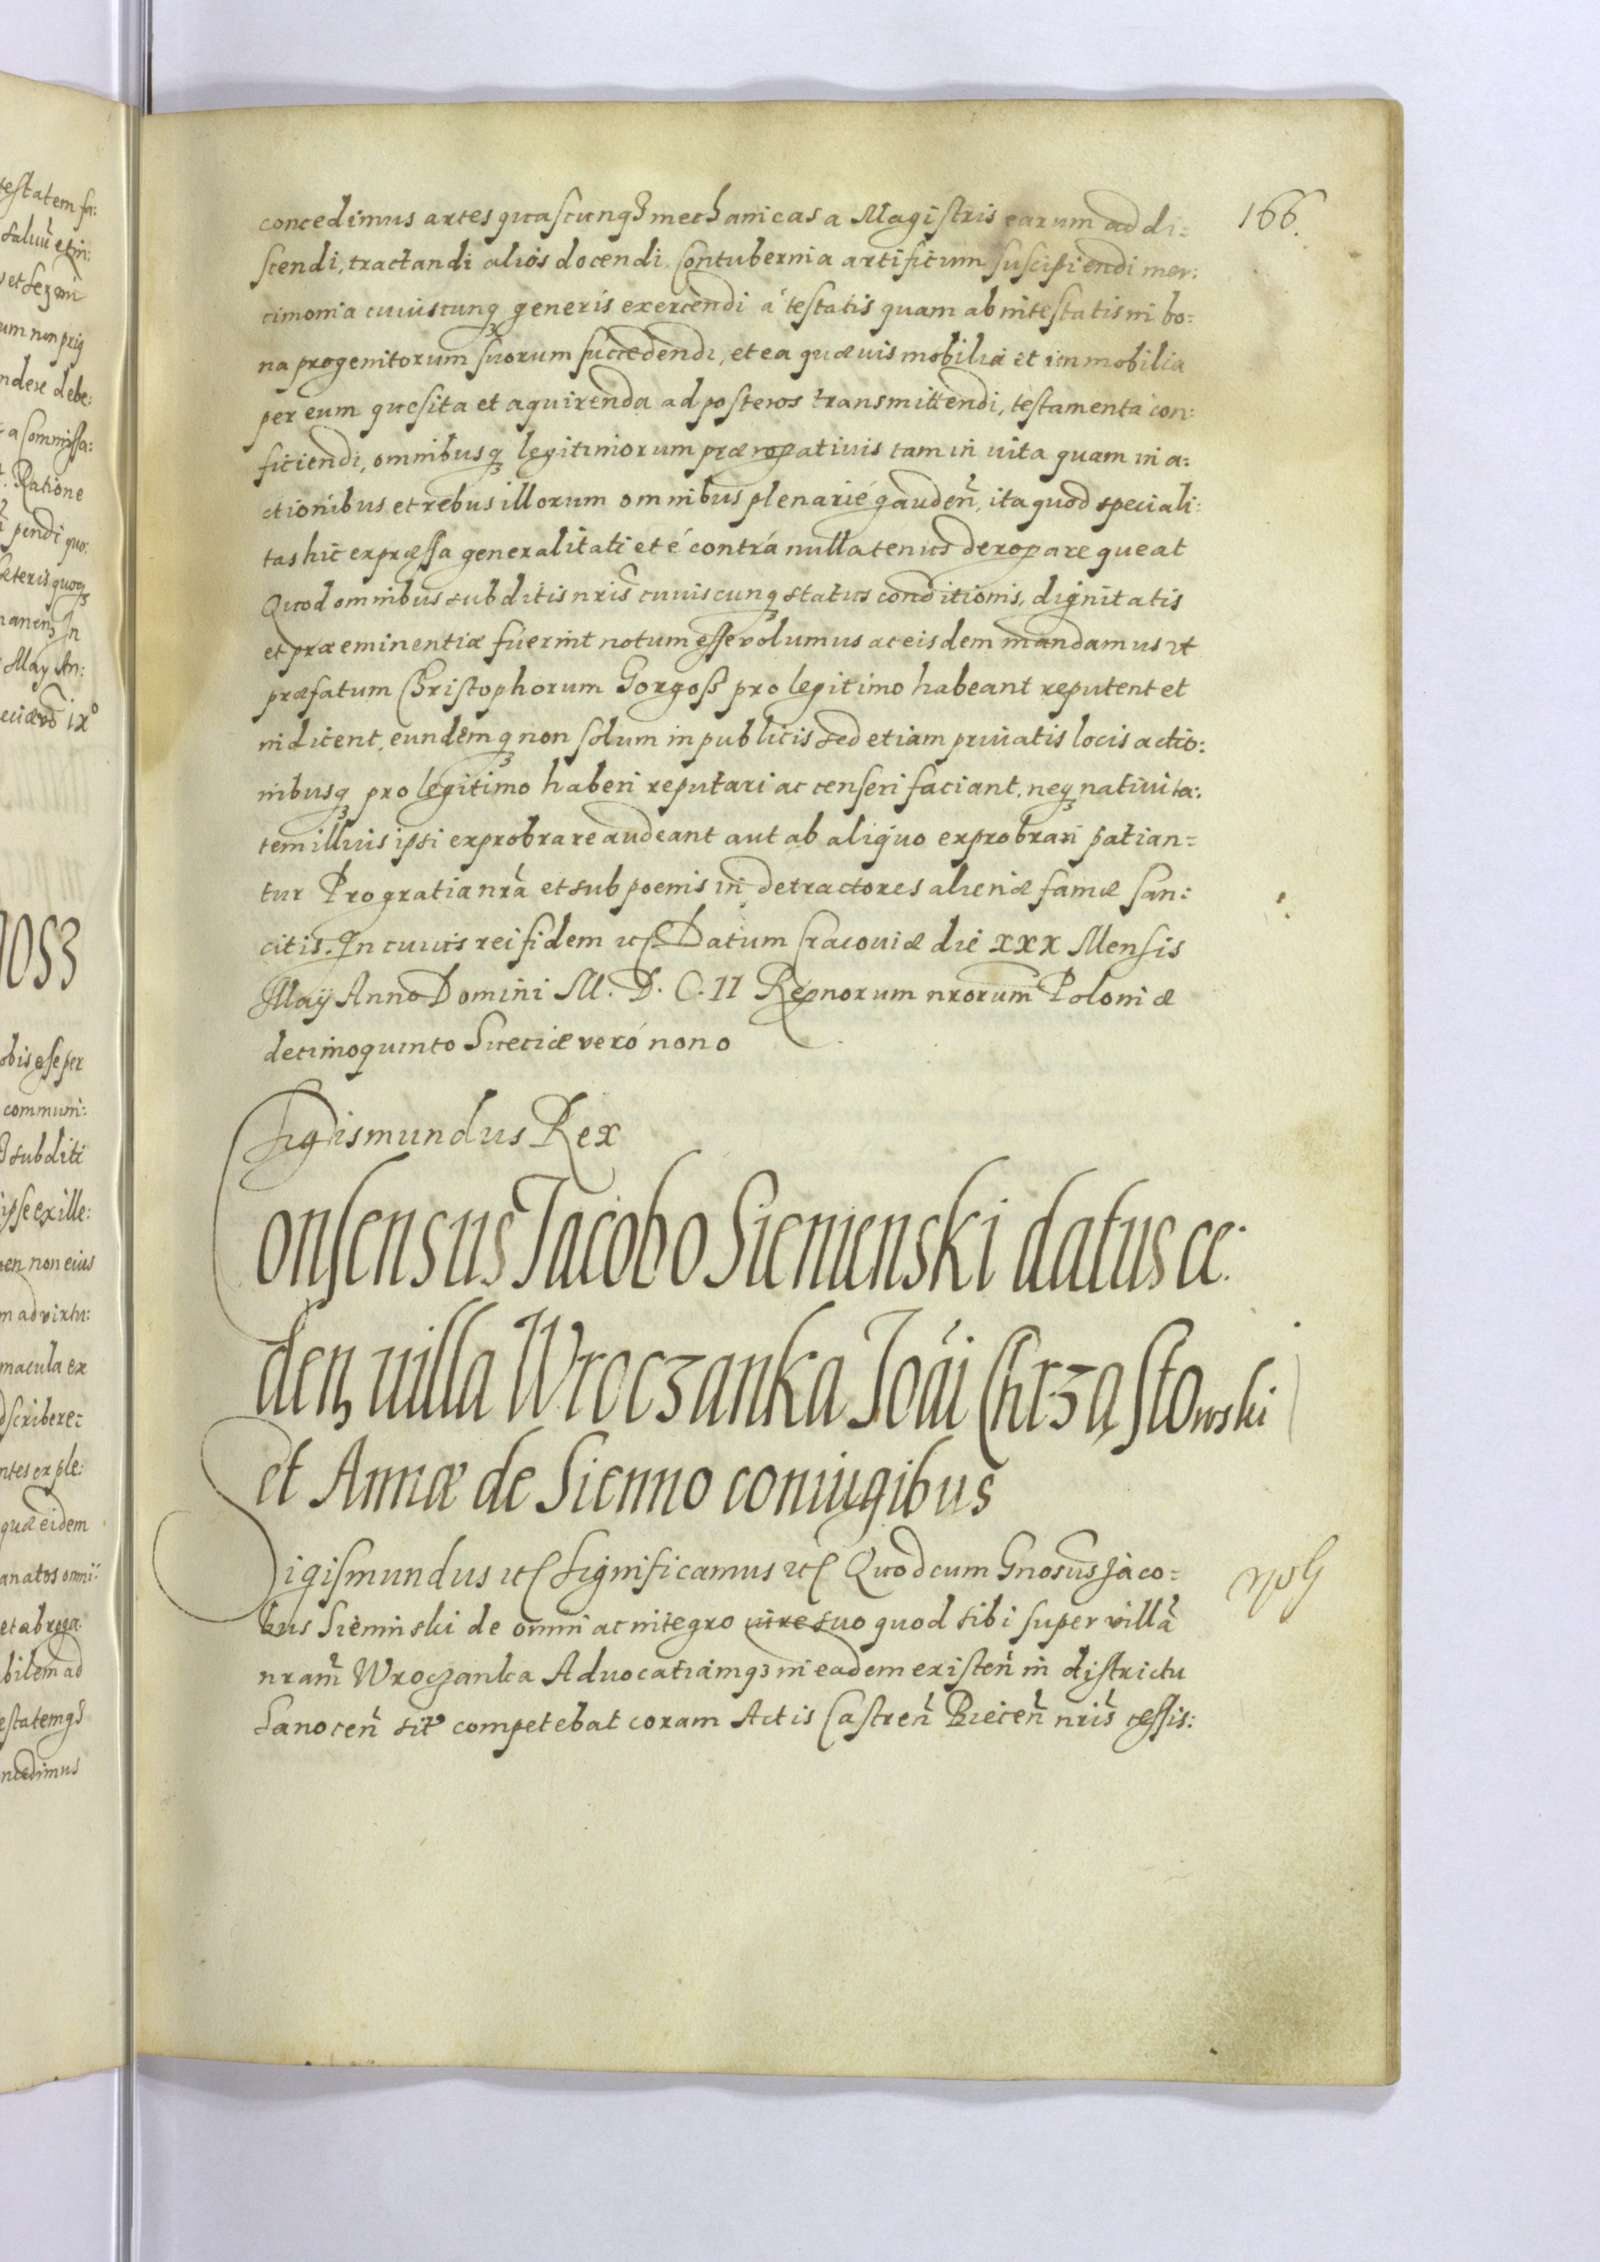 166.
concedimus artes quascunq3 mechanicas a Magistris earum ad di:
scendi, tractandi alios docendi. Contubernia artificum suscipiendi mer:
cimonia cuiuscunq3 generis exercendi á testatis quam ab intestatis in bo:
na progenitorum suorum succedendi, et ea quævis mobilia et immobilia
per eum quesita et aquirenda ad posteros transmittendi, testamenta con:
ficiendi, omnibusq3 legitimorum prærogativis tam in vita quam in a:
ctionibus et rebus illorum omnibus plenarié gauden, ita quod speciali:
tas hic expræssa generalitati et é contrá nullatenus derogare queat
Quod omnibus subditis nris cuiuscunq3 status conditionis, dignitatis
et præeminentiæ fuerint notum esse volumus ac eisdem mandamus ut
præfatum Christophorum Gorgoß pro legitimo habeant reputent et
iudicent, eundemq3 non solum in publicis sed etiam privatis locis actio:
nibusq3 pro legitimo haberi reputari ac censeri faciant, neq3 nativita:
tem illius ipsi exprobrare audeant aut ab aliquo exprobrari patian=
tur Pro gratia nra et sub poenis in detractores alienæ famæ san:
citis. In cuius rei fidem etc Datum Cracoviæ die xxx Mensis
Maÿ Anno Domini M. D. C. II Regnorum nrorum Poloniæ
decimoquinto Sueciæ veró nono
Sigismundus Rex
Consensus Jacobo Sienienski datus ce:
den3 villa Wroczanka Joãi Chrząstowski
et Annæ de Sienno coniugibus
Sigismundus etc Significamus etc Quod cum Gnosus Jaco=
bus Siemin ski de omni ac integro iure suo quod sibi super villã
nram Wroczanka Advocatiamq3 in eadem existen in districtu
Sanocen sit competebat coram Actis Castren Biecen nris cessis: